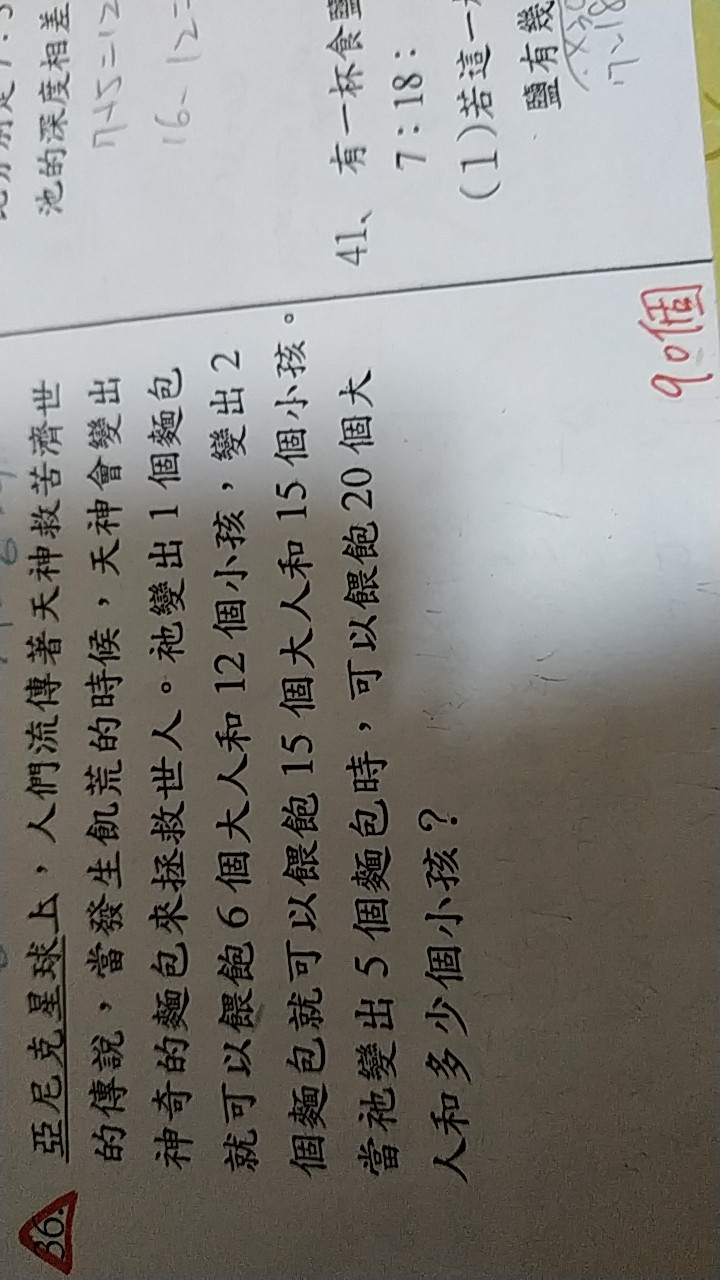 池的深度相差
7+5=12
16-12=
41、 有一杯食鹽
7：18：
(1)若這一
鹽有幾
7、18
36. 亞尼克星球上，人們流傳著天神救苦濟世
的傳說，當發生飢荒的時候，天神會變出
神奇的麵包來拯救世人。祂變出1個麵包
就可以餵飽6個大人和12個小孩，變出2
個麵包就可以餵飽15個大人和15個小孩。
當祂變出5個麵包時，可以餵飽20個大
人和多少個小孩？
90個